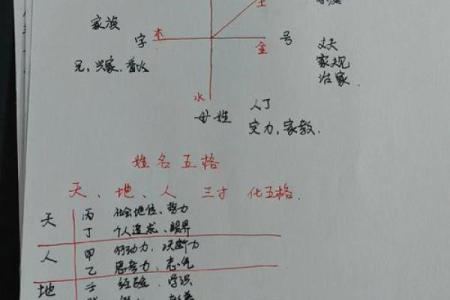 土
家族
字 木 金 号
丈夫
家规
治家
兄、兴家、
水
人丁
母姓
实力、家教.
姓名五格
天、地、人 三才 化五格.
天 丙 社会地位、势力
丁 个人造成、眼界
人 甲 行动力、决断力
乙 思考力、志气
地 子 经验、学识